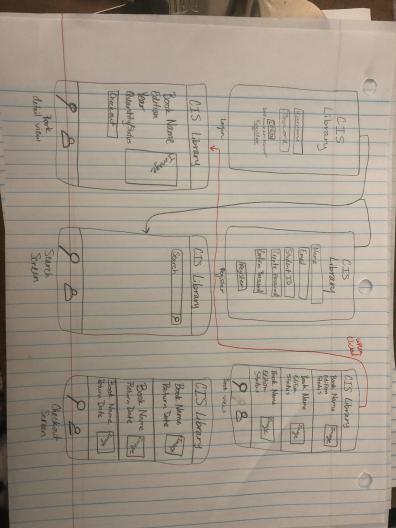 CIS
Library
Username
Password
Login
Register
Login
CIS
Library
Name
Email
Student ID
Create Password
Confirm Password
Register
Register
when
clicked
CIS Library
Book Name
edition
Status
Book Name
edition
Status
Book Name
edition
Status
Book view
CIS Library
Book Name
edition
Year
Quantity/Status
Checkout
Book
detail view
CIS Library
Search
Search
Screen
CIS Library
Book Name
Return Date
Book Name
Return Date
Book Name
Return Date
Checkout
Screen